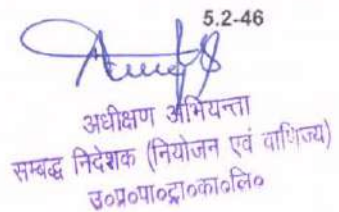 5.2-46
अधीक्षण अभियन्ता
सम्बद्ध निदेशक (नियोजन एवं वाणिज्य)
उ०प्र०पा०ट्रा०का०लि०